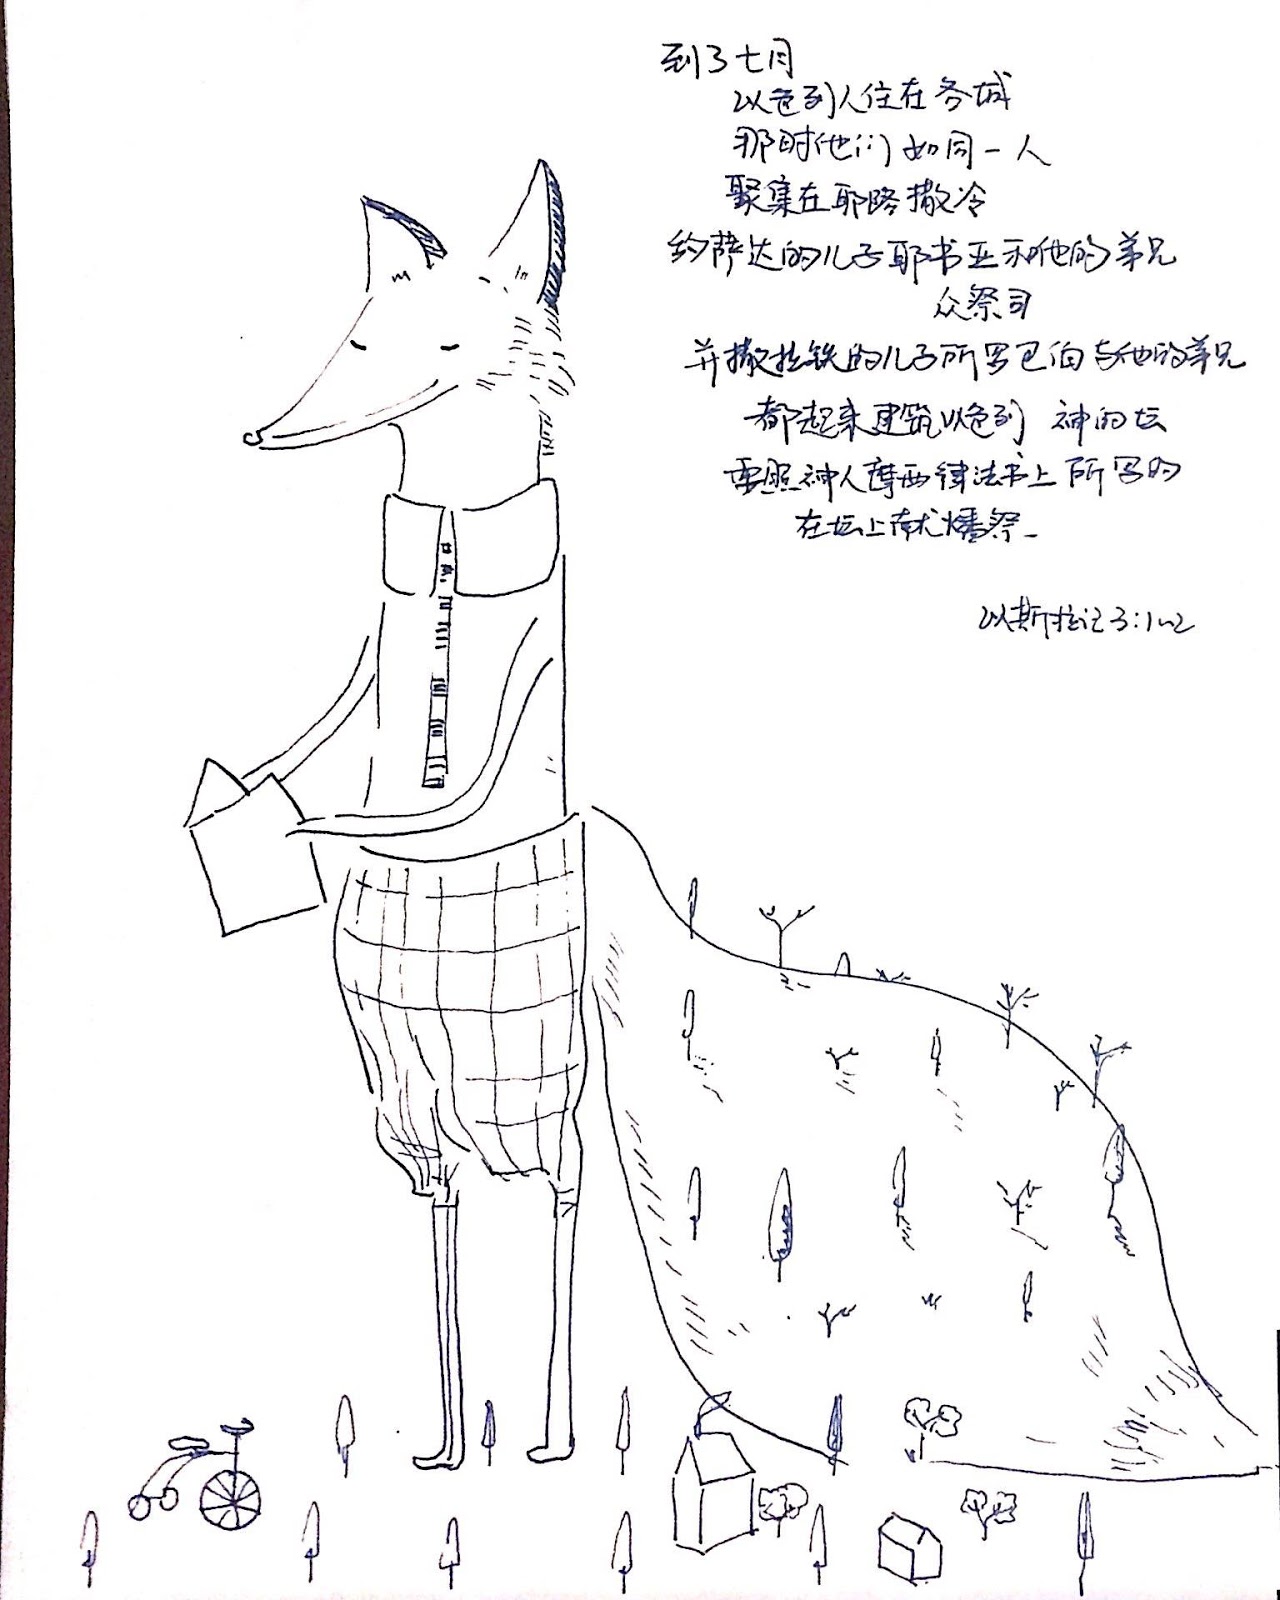 到了七月
以色列人住在各城
那时他们如同一人
聚集在耶路撒冷
约萨达的儿子耶书亚和他的弟兄
众祭司
并撒拉铁的儿子所罗巴伯与他的弟兄
都起来建筑以色列 神的坛
要照神人摩西律法书上所写的
在坛上献燔祭_
以斯拉记3:1~2